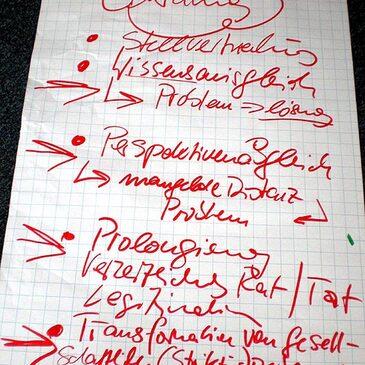 • Stellvertretung
• Wissensausgleich
↳ Problem ⇒ lösung
• Perspektivenabgleich
↳ mangelnde Distanz
Problem
• Prolongierung
Verzerrung Rat / Tat
Legitimation
• Transformation von gesell-